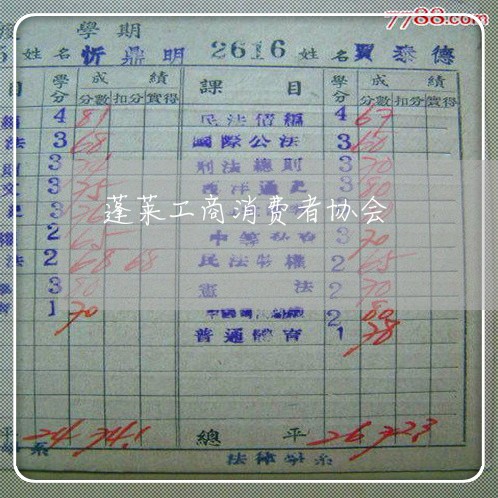 7788.com
學期
姓名 忻鼎明 2616 姓名 賈泰德
目 學分 成績 課目 學分 成績
分數 扣分 實得 分數 扣分 實得
4 81 民法債編 4 67
法 3 68 國際公法 3 60
3 刑法總則 3 70
3 75 西洋通史 3 80
蓬莱工商消费者协会
2 65 3 70
法 2 68 68 民法物權 2 65
3 80 憲法 2 70
1 70 2 80
普通體育 1 78
平 24 74.1 總平 26 72.3
系 法律學系